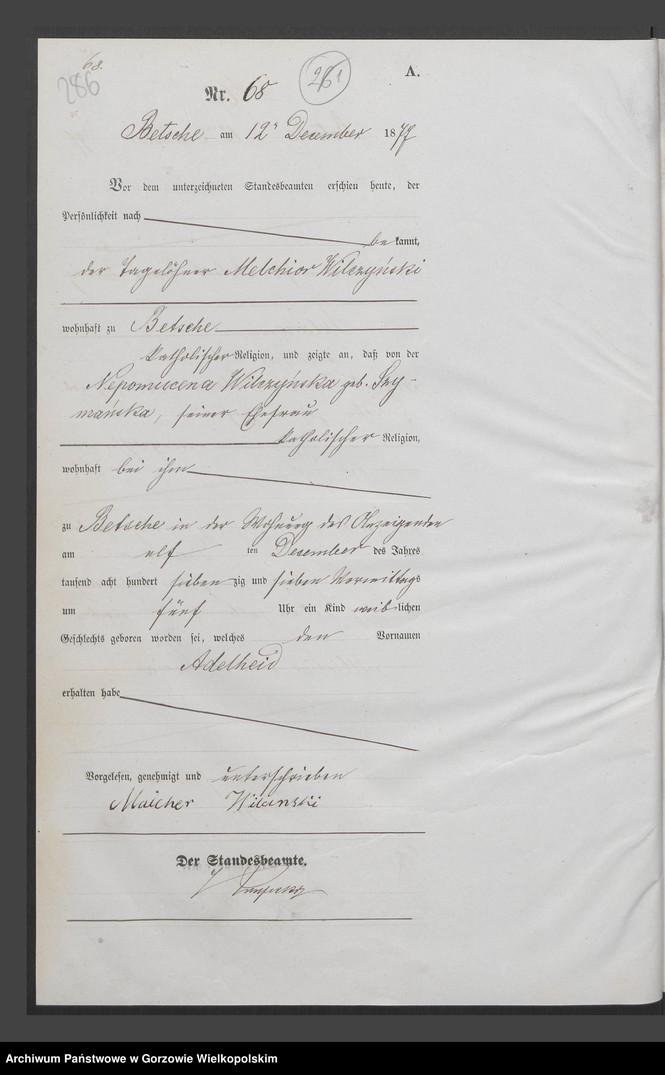 68.
286
261
A.
Nr. 68
Betsche am 12ᵗ December 1877
Vor dem unterzeichneten Standesbeamten erschien heute, der
Persönlichkeit nach
be kannt,
der Tagelöhner Melchior Wilczyński
wohnhaft zu Betsche
katholischer Religion, und zeigte an, daß von der
Nepomucena Wilczyńska geb. Szy-
mańska, seiner Ehefrau
katholischer Religion,
wohnhaft bei ihm
zu Betsche in der Wohnung des Anzeigenden
am elf ten December des Jahres
tausend acht hundert sieben zig und sieben Vormittags
um fünf Uhr ein Kind weib lichen
Geschlechts geboren worden sei, welches den Vornamen
Adelheid
erhalten habe
Vorgelesen, genehmigt und unterschrieben
Maicher Wilcinski
Der Standesbeamte.
Archiwum Państwowe w Gorzowie Wielkopolskim